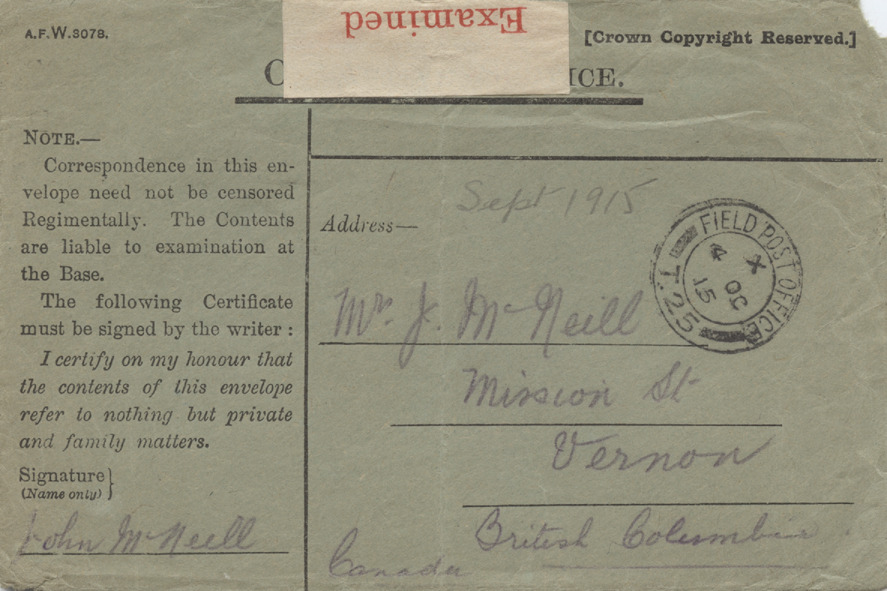 A.F.W.3078.
Examined
[Crown Copyright Reserved.]
ICE.
NOTE.—
Correspondence in this en-
velope need not be censored
Regimentally. The Contents
are liable to examination at
the Base.
The following Certificate
must be signed by the writer :
I certify on my honour that
the contents of this envelope
refer to nothing but private
and family matters.
Signature
(Name only)
John McNeill
Sept 1915
Address—
FIELD POST OFFICE
T.25
X
4 OC
15
Mr. J. McNeill
Mission St
Vernon
British Columbia
Canada